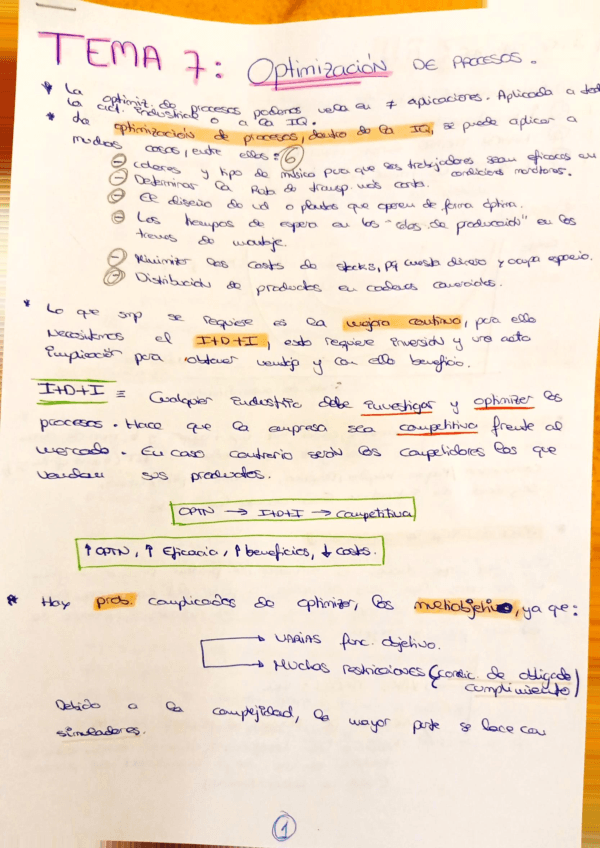 TEMA 7: Optimización DE PROCESOS.
* La optimiz. de procesos podemos verla en ≠ aplicaciones. Aplicada a toda
la act. industrial o a la IQ.
* La optimización de procesos, dentro de la IQ, se puede aplicar a
muchas cosas, entre ellas: 6
- Colores y tipo de música para que los trabajadores sean eficaces en
condiciones monótonas.
- Determinar la Ruta de transp. más corta.
- El diseño de que operen de forma óptima.
- Los tiempos de espera en las "colas de producción" en los
trenes de montaje.
- Minimizar los costs de stocks, pq cuesta dinero y ocupa espacio.
- Distribución de productos en cadenas comerciales.
* Lo que smp se requiere es la mejora continua, para ello
necesitamos el I+D+I, esto requiere inversión y una alta
implicación para obtener ventaja y con ello beneficio.
I+D+I ≡ Cualquier industria debe investigar y optimizar los
procesos. Hace que la empresa sea competitiva frente al
mercado. En caso contrario serán los competidores los que
vendan sus productos.
OPTN → I+D+I → Competitiva
↑ OPTN, ↑ Eficacia, ↑ beneficios, ↓ costs.
* Hay prob. complicados de optimizar, los multiobjetivo, ya que:
→ VARIAS func. objetivo.
→ MUCHAS restricciones (condic. de obligado
cumplimiento)
Debido a la complejidad, la mayor parte se hace con
simuladores.
1